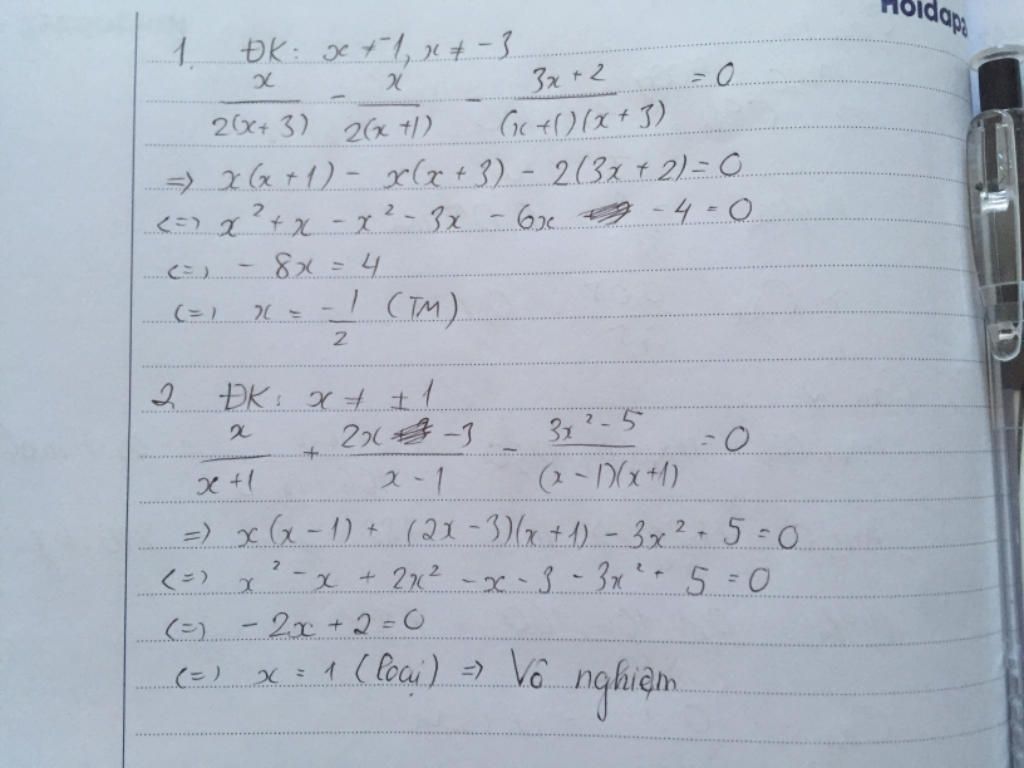 Hoidapa
1. ĐK: x ≠ -1, x ≠ -3
x/2(x+3) - x/2(x+1) - 3x+2/(x+1)(x+3) = 0
=> x(x+1) - x(x+3) - 2(3x+2) = 0
<=> x² + x - x² - 3x - 6x - 4 = 0
<=> - 8x = 4
<=> x = -1/2 (TM)
2 ĐK: x ≠ ±1
x/x+1 + 2x-3/x-1 - 3x²-5/(x-1)(x+1) = 0
=> x(x-1) + (2x-3)(x+1) - 3x² + 5 = 0
<=> x² - x + 2x² - x - 3 - 3x² + 5 = 0
<=> - 2x + 2 = 0
<=> x = 1 (loại) => Vô nghiệm